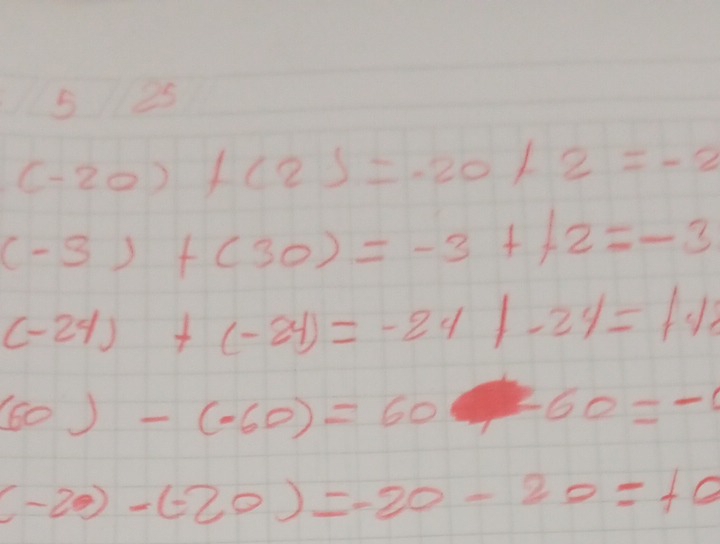 5 25
(-20) + (2) = -20 + 2 = -2
(-3) + (30) = -3 + +2 = -3
(-24) + (-24) = -24 + -24 = +48
(60) - (-60) = 60 -60 = -
(-20) - (-20) = -20 - 20 = +0